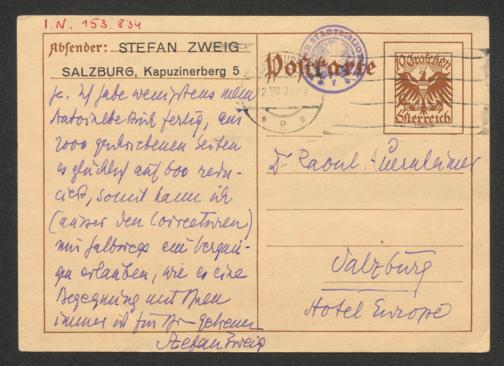 I.N. 153.834
Absender: STEFAN ZWEIG
SALZBURG, Kapuzinerberg 5
Postkarte
10 Groschen
Österreich
ja. Ich habe wenigstens mein
Antoinettebuch fertig, aus
2000 geschriebenen Seiten
es glücklich auf 600 redu-
ciert, somit kann ich
(ausser den Correcturen)
mir halbwegs ein Vergnü-
gen erlauben, wie es eine
Begegnung mit Ihnen
immer ist für Ihr getreuer
Stefan Zweig
Dr Raoul Auernheimer
Salzburg
Hotel Europe